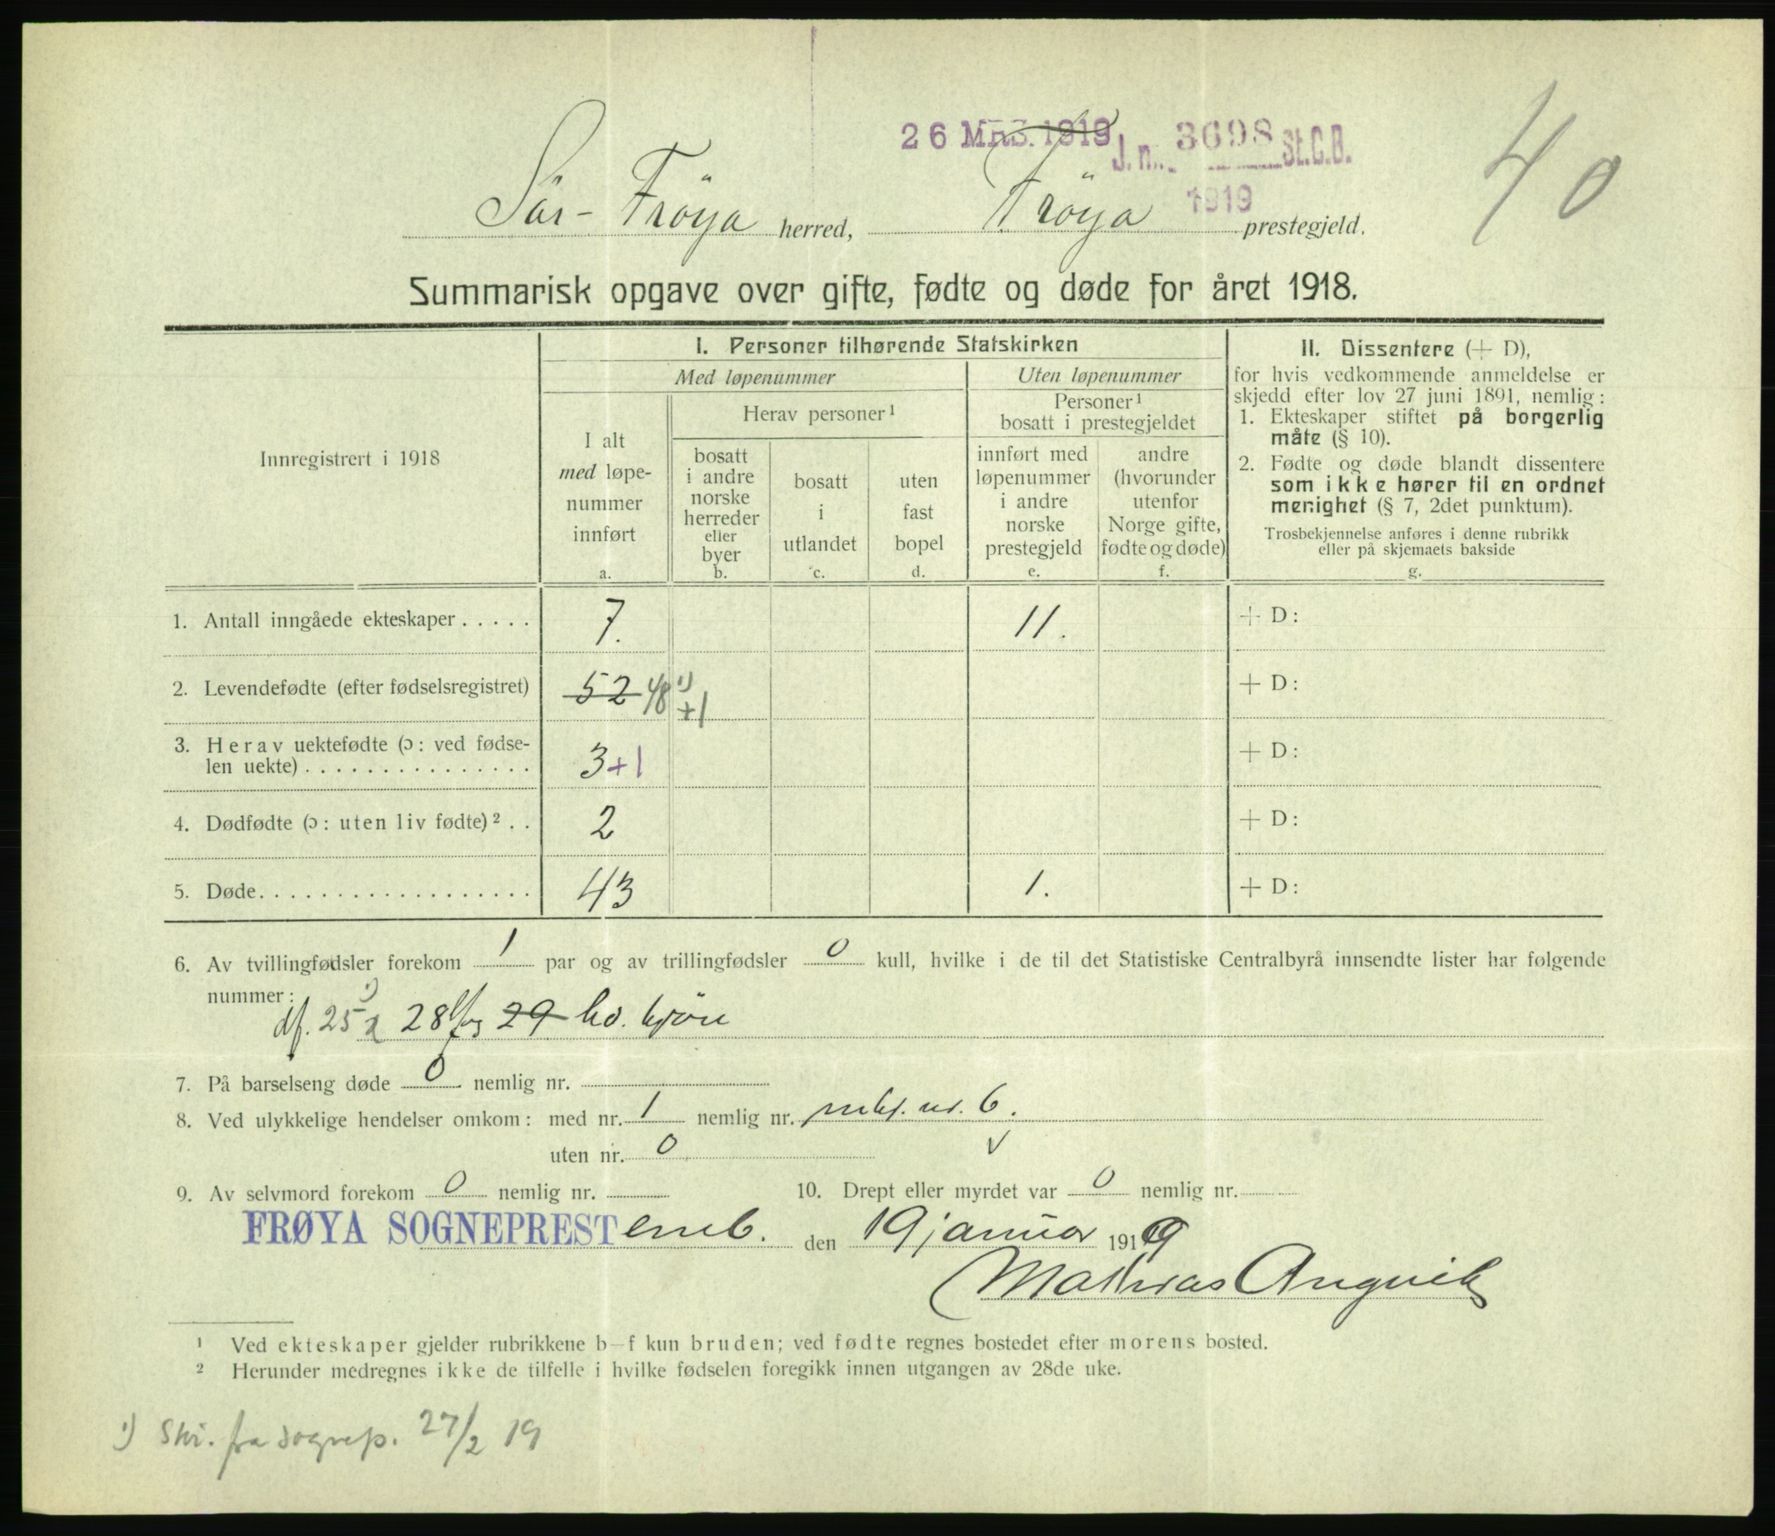 26 MRS. 1919 J. n. 3698 St.C.B.
1919
40
Sör-Fröya herred, Fröya prestegjeld.
Summarisk opgave over gifte, fødte og døde for året 1918.
Innregistrert i 1918
I. Personer tilhørende Statskirken
Med løpenummer
Uten løpenummer
I alt
med løpe-
nummer
innført
a.
Herav personer ¹
bosatt
i andre
norske
herreder
eller
byer
b.
bosatt
i
utlandet
c.
uten
fast
bopel
d.
Personer ¹
bosatt i prestegjeldet
innført med
løpenummer
i andre
norske
prestegjeld
e.
andre
(hvorunder
utenfor
Norge gifte,
fødte og døde)
f.
II. Dissentere (+ D),
for hvis vedkommende anmeldelse er
skjedd efter lov 27 juni 1891, nemlig:
1. Ekteskaper stiftet på borgerlig
måte (§ 10).
2. Fødte og døde blandt dissentere
som ikke hører til en ordnet
menighet (§ 7, 2det punktum).
Trosbekjennelse anføres i denne rubrikk
eller på skjemaets bakside
g.
1. Antall inngåede ekteskaper . . . . . 7. 11. + D:
2. Levendefødte (efter fødselsregistret) 52 48 ¹) +1 + D:
3. Herav uektefødte (ɔ: ved fødse-
len uekte) . . . . . . . . . . . . . . . 3+1 + D:
4. Dødfødte (ɔ: uten liv fødte) ² . . 2 + D:
5. Døde. . . . . . . . . . . . . . . . . . 43 1. + D:
6. Av tvillingfødsler forekom 1 par og av trillingfødsler 0 kull, hvilke i de til det Statistiske Centralbyrå innsendte lister har følgende
nummer:
df. 25 ¹) 28 og 29 kv. kjön
7. På barselseng døde 0 nemlig nr.
8. Ved ulykkelige hendelser omkom: med nr. 1 nemlig nr. mkj. nr. 6.
uten nr. 0 v
9. Av selvmord forekom 0 nemlig nr. 10. Drept eller myrdet var 0 nemlig nr.
FRØYA SOGNEPREST emb. den 19 januar 1919
Mathias Angvik
¹ Ved ekteskaper gjelder rubrikkene b—f kun bruden; ved fødte regnes bostedet efter morens bosted.
² Herunder medregnes ikke de tilfelle i hvilke fødselen foregikk innen utgangen av 28de uke.
¹) Skr. fra sognep. 27/2 19